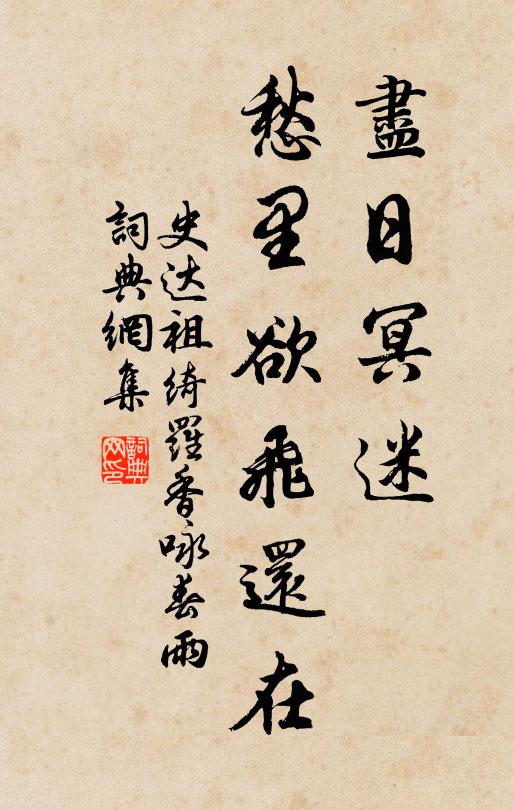 盡日冥迷
愁里欲飛還在
史达祖绮羅香咏春雨
詞典網集
詞典
网印